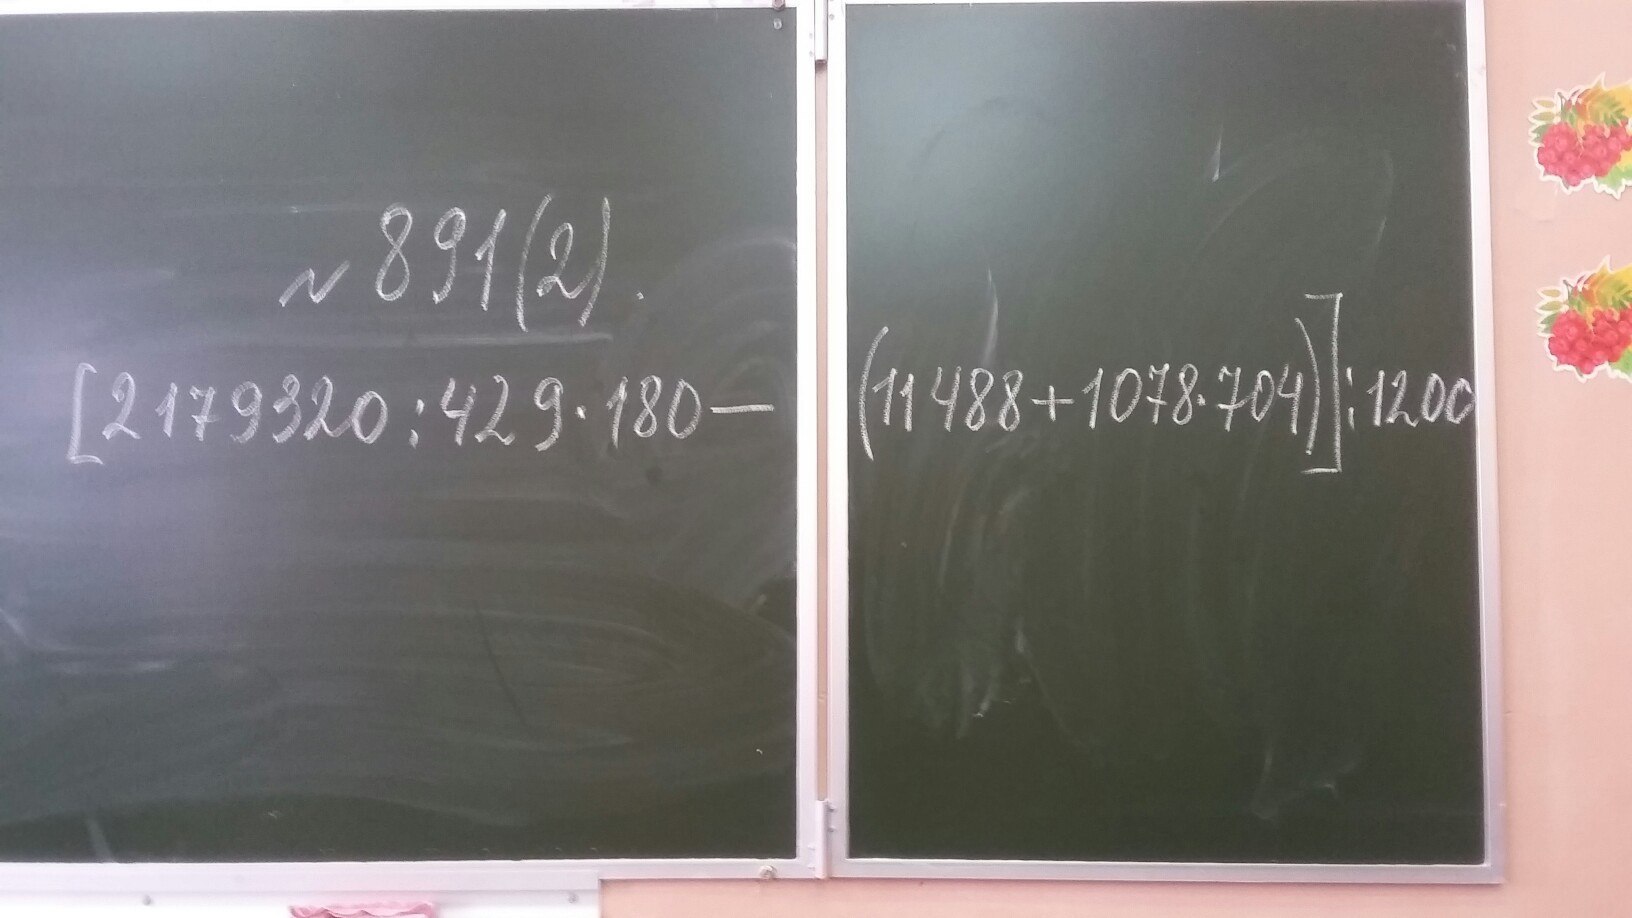 № 891(2).
[2179320:429·180—(11488+1078·704)]:1200